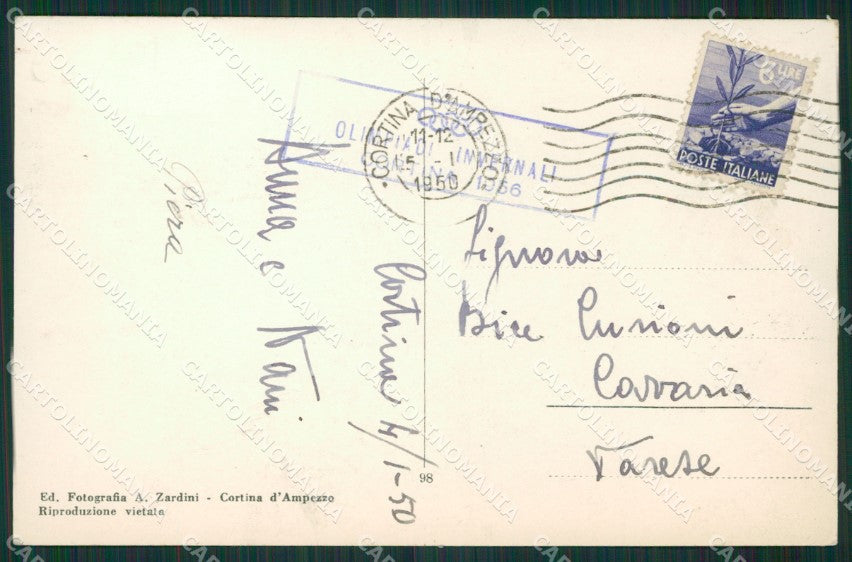 6 LIRE
POSTE ITALIANE
CORTINA D'AMPEZZO
11-12
5 - I
1950
OLIMPIADI INVERNALI
CORTINA 1956
Piera
Anna e Nani
Cortina 4/1-50
Signora
Bice Curioni
Cavaria
Varese
98
Ed. Fotografia A. Zardini - Cortina d'Ampezzo
Riproduzione vietata
CARTOLINOMANIA